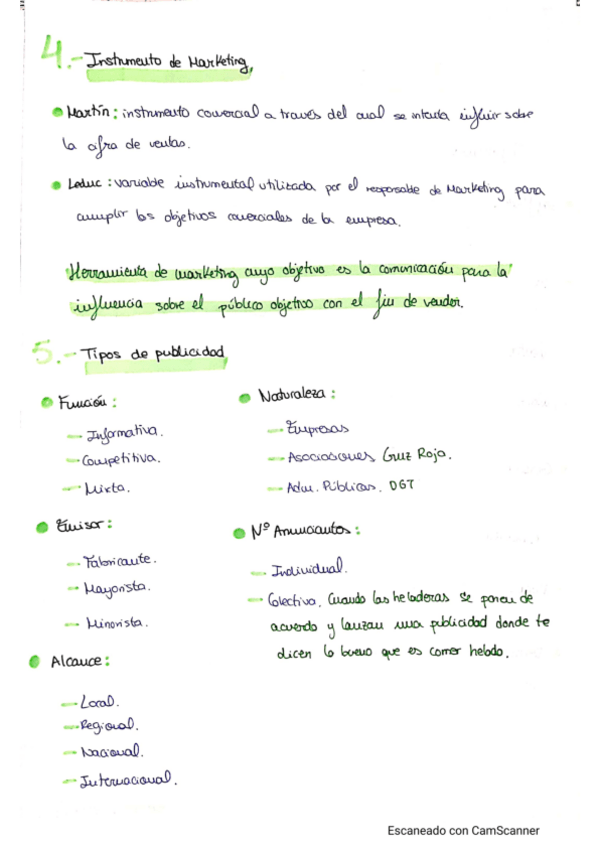 4.- Instrumento de Marketing,
Martín: instrumento comercial a través del cual se intenta influir sobre
la cifra de ventas.
Leduc: variable instrumental utilizada por el responsable de Marketing para
cumplir los objetivos comerciales de la empresa.
Herramienta de marketing cuyo objetivo es la comunicación para la
influencia sobre el público objetivo con el fin de vender.
5.- Tipos de publicidad
Función:
- Informativa.
- Competitiva.
- Mixta.
Naturaleza:
- Empresas
- Asociaciones Cruz Roja.
- Adm. Públicas. DGT
Emisor:
- Fabricante.
- Mayorista.
- Minorista.
Nº Anunciantes:
- Individual.
- Colectiva. Cuando las heladeras se ponen de
acuerdo y lanzan una publicidad donde te
dicen lo bueno que es comer helado.
Alcance:
- Local.
- Regional.
- Nacional.
- Internacional.
Escaneado con CamScanner